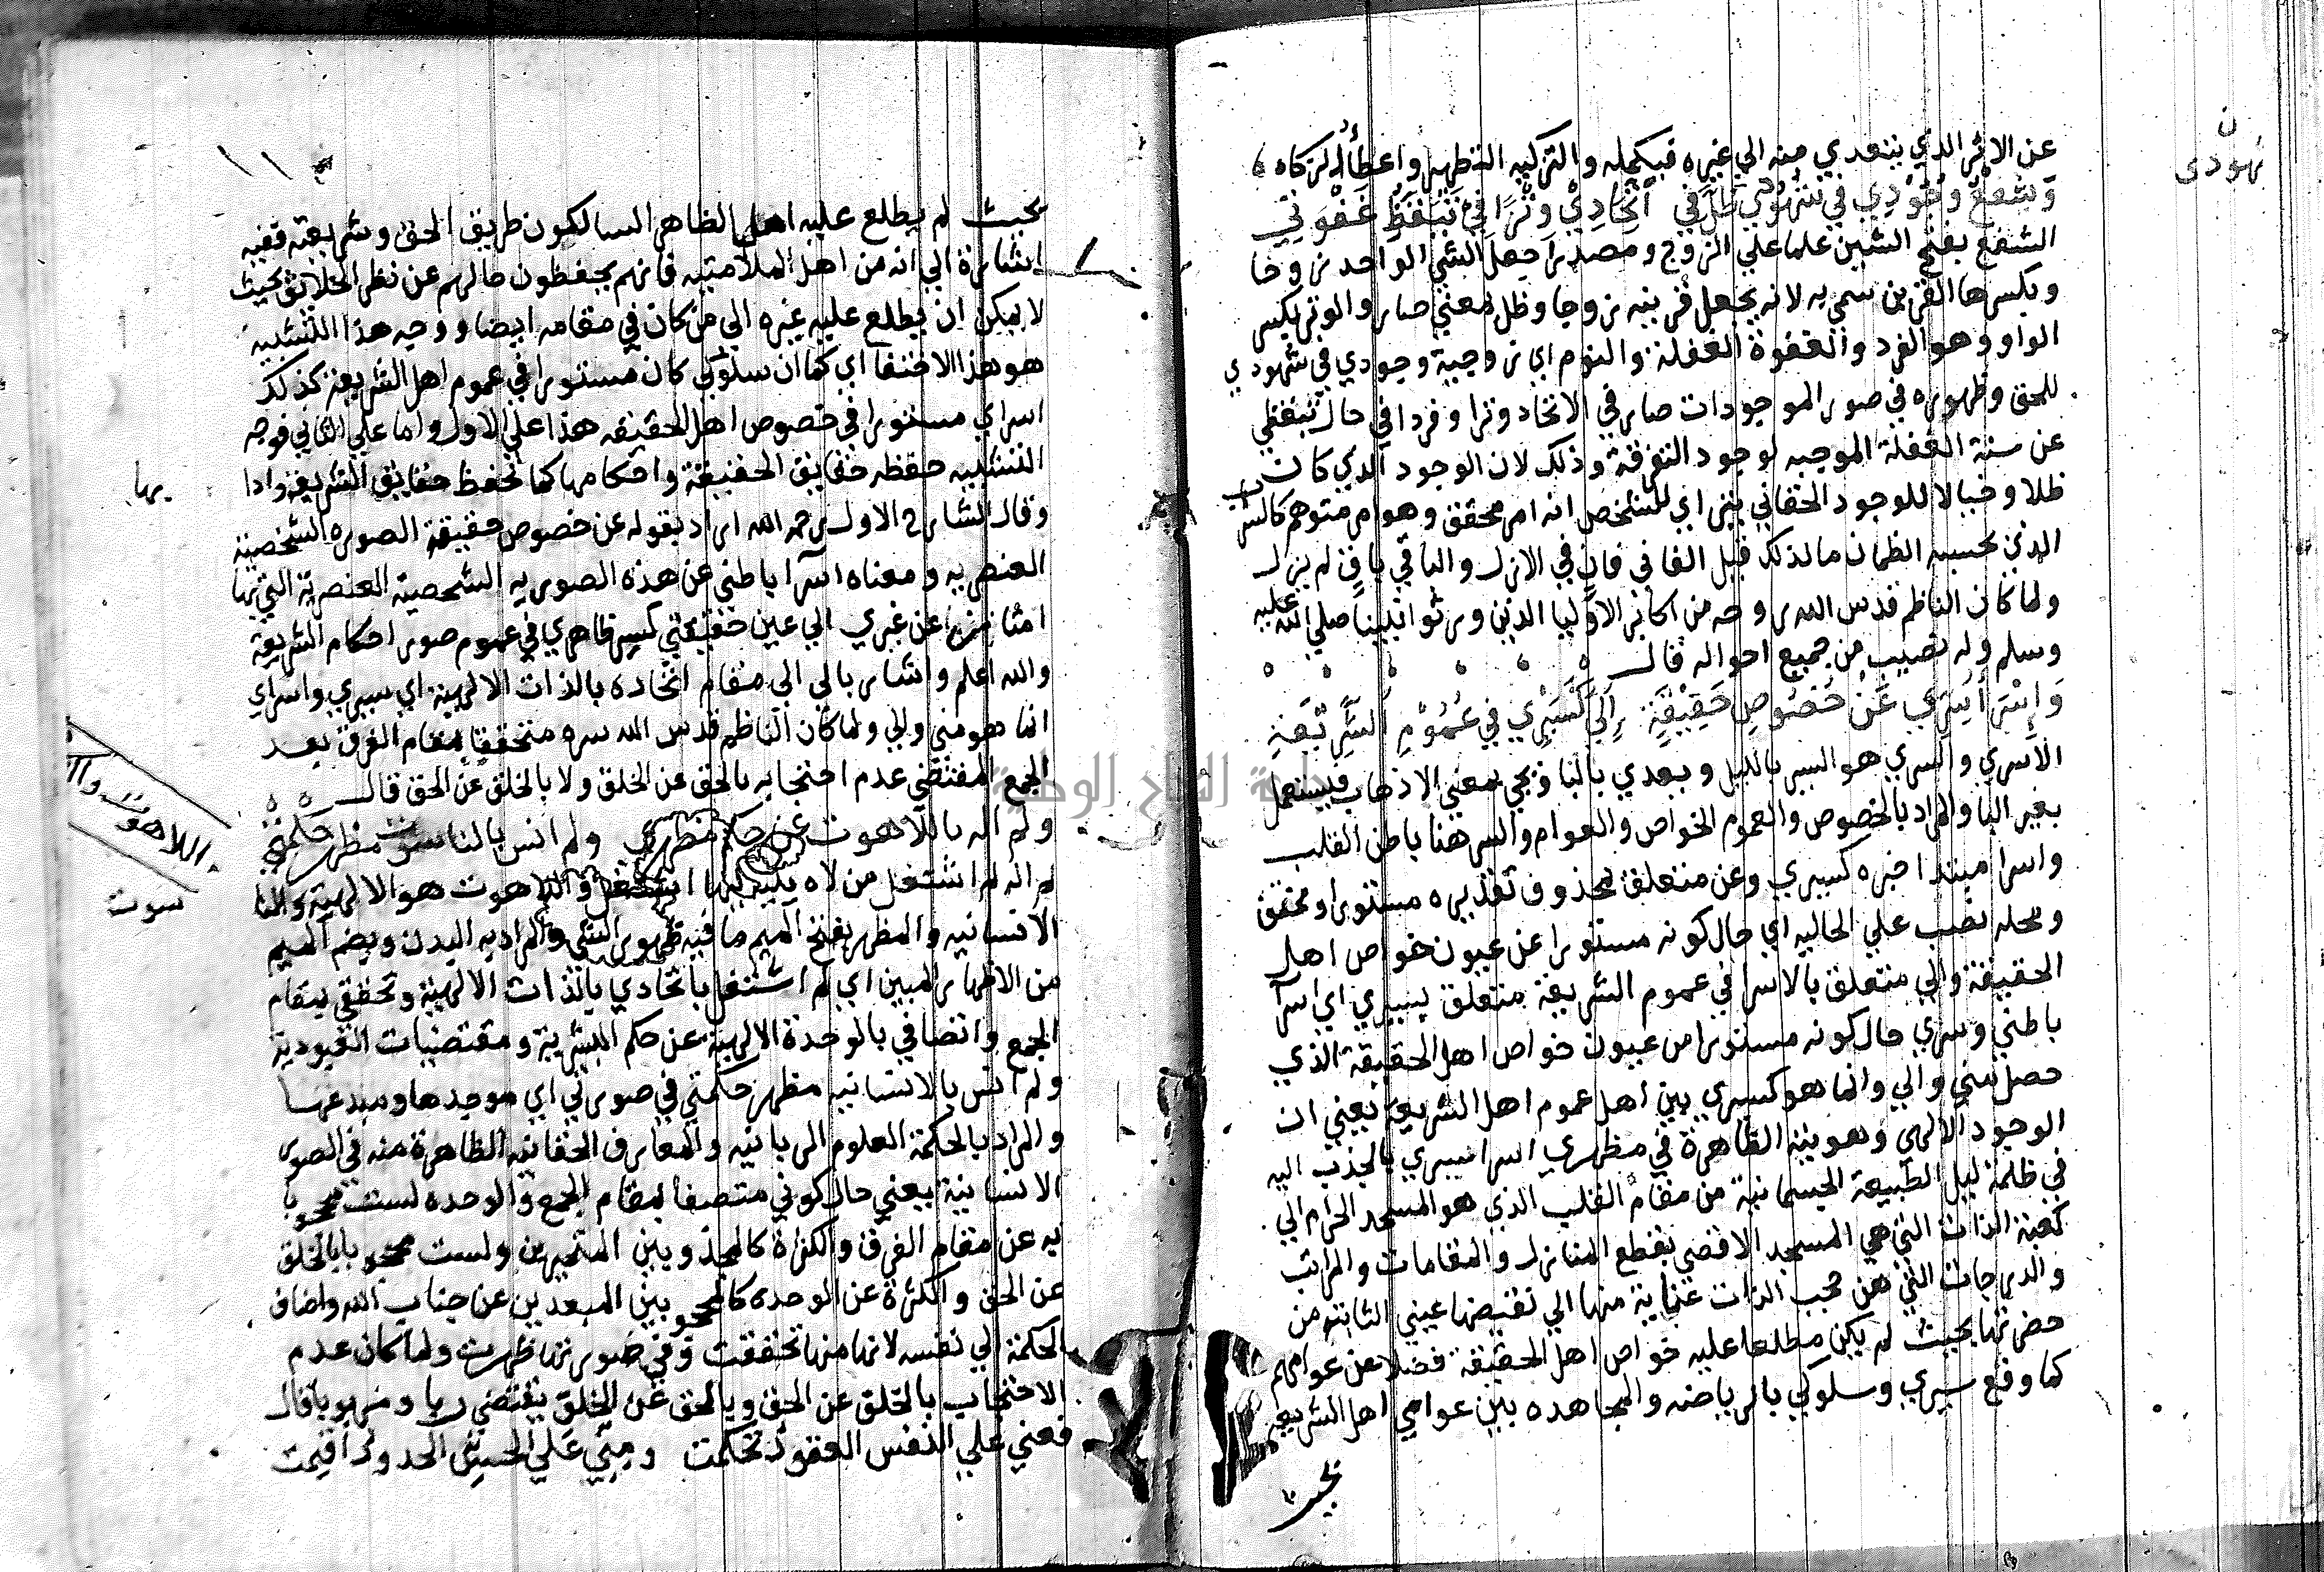 عن الاثر الذي يتعدي منه الي غيره فيكمله والتزكيه التطهير واعطا الزكاه
وَشفع وُجُوْدِي في شُهُوْدِي ظَلَّ في اتحادِيْ وِتْرًا فِيْ تَيَقُّظِ غَفْوَتِيْ
الشفع بفتح الشين علما علي الزوج ومصدرا جعل الشي الواحد زوجا
وبكسرها القرين سمي به لانه يجعل قرينه زوجا وظل بمعني صار والوتر بكسر
الواو وهو الفرد والغفوة الغفلة والنوم اي زوجية وجودي في شهودي
للحق وظهوره في صور الموجودات صار في الاتحاد وترا وفردا في حال تيقظي
عن سنة الغفلة الموجبه لوجود التفرقة وذلك لان الوجود الذي كان
ظلا وخيالا للوجود الحقاني يتراي للشخص انه امر محقق وهو امر متوهم كالسراب
الذي يحسبه الظمان ما لذلك قيل الفاني فان في الازل والباقي باق لم يزل
ولما كان الناظم قدس الله روحه من اكابر الاوليا الذين ورثوا نبينا صلي الله عليه
وسلم وله نصيب من جميع احواله قال
وَاِسْرَا سِرِّي عَنْ خُصُوصِ حَقِيْقَةٍ اِلَيَّ كَسَيْرِي فِي عُمُوْمِ الشَّرِيْعَةِ
الاسري والسري هو السير بالليل ويعدي بالبا ويجي بمعني الاذهاب فيستعمل
بغير البا والمراد بالخصوص والعموم الخواص والعوام والسر هنا باطن القلب
واسرا مبتدا خبره كسيري وعن متعلق بمحذوف تقديره مستورا ومحقق
ومحله نصب علي الحاليه اي حال كونه مستورا عن عيون خواص اهل
الحقيقة والي متعلق بالاسرا في عموم الشريعة متعلق بسيري اي اسرا
باطني وسري حال كونه مستورا من عيون خواص اهل الحقيقة الذي
حصل مني والي وانما هو كسيري بين اهل عموم اهل الشريعة يعني ان
الوجود الالهي وهويته الظاهرة في مظهري اسرا بسري بالجذب اليه
في ظلمة ليل الطبيعة الجسمانية من مقام القلب الذي هو المسجد الحرام الي
كعبة الذات التي هي المسجد الاقصي بقطع المنازل والمقامات والمراتب
والدرجات التي هن حجب الذات عناية منها الي تقتضها عيني الثابته من
حضرتها بحيث لم يكن مطلعا عليه خواص اهل الحقيقة فضلا عن عوامهم
كما وقع سيري وسلوكي بالرياضه والمجاهده بين عوامي اهل الشريعه
بحيث
بحيث لم يطلع عليه اهل الظاهر السالكون طريق الحق وشريعته ففيه
اشارة الي انه من اهل الملامتيه فانهم يحفظون حالهم عن نظر الخلائق بحيث
لا يمكن ان يطلع عليه غيره الي من كان في مقامه ايضا ووجه هذا التشبيه
هو هذا الاختفا اي كما ان سلوكي كان مستورا في عموم اهل الشريعة كذلك
اسراي مستورا في خصوص اهل الحقيقه هذا علي الاول واما علي الثاني فوجه
التشبيه حفظه حقايق الحقيقة واحكامها كما تحفظ حقايق الشريعه وادابها
وقال الشارح الاول رحمه الله اراد بقوله عن خصوص حقيقة الصوره الشخصية
العنصريه ومعناه اسرا باطني عن هذه الصوريه الشخصية العنصرية التي بها
امتازت عن غيري الي عين حقيقتي كسير ظاهري في عموم صور احكام الشريعة
والله اعلم واشار بالي الي مقام اتحاده بالذات الالهية اي سيري واسراي
انما هو مني ولي ولما كان الناظم قدس الله سره متحققا بمقام الفرق بعد
الجمع المقتضي عدم احتجابه بالحق عن الخلق ولا بالخلق عن الحق قال
ولم اله باللاهوت عن حكم مظهري ولم انس بالناسوت مظهر حكمتي
لم اله لم اشتغل من لاه يليه لها اشتغل واللاهوت هو الالهية والنا
الانسانيه والمظهر بفتح الميم ما فيه ظهور الشي والمراد به البدن وبضم الميم
من الاظهار المبين اي لم اشتغل باتحادي بالذات الالهية وتحققي بمقام
الجمع واتصافي بالوحدة الالهية عن حكم البشرية ومقتضيات العبودية
ولم انس بالانسانيه مظهر حكمتي في صورتي اي موجدها ومبدعها
والمراد بالحكمة العلوم الربانيه والمعارف الحقانيه الظاهرة منه في الصور
الانسانية يعني حال كوني متصفا بمقام الجمع والوحده لست محجوبا
به عن مقام الفرق والكثرة كالمجذوبين المتحيرين ولست محجوبا بالخلق
عن الحق والكثرة عن الوحده كالمحجوبين المبعدين عن جناب الله واضاف
الحكمة الي نفسه لانها منها تحققت وفي صورتها ظهرت ولما كان عدم
الاحتجاب بالخلق عن الحق وبالحق عن الخلق يقتضي ربا ومربوبا قال
فعني علي النفس العقود تحكمت ومني علي الحسِّ الحدود اُقيمت